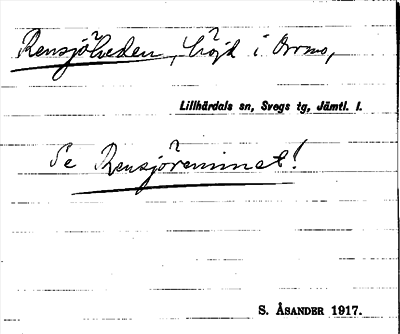 Rensjöheden, höjd i Orrmo,
Lillhärdals sn, Svegs tg, Jämtl. l.
Se Rensjöremmet!
S. ÅSANDER 1917.